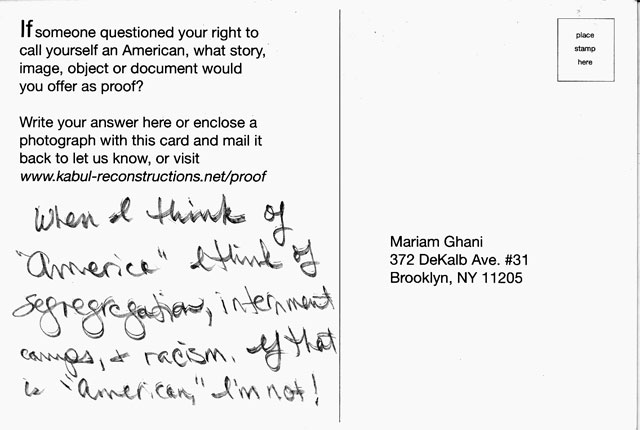 If someone questioned your right to
call yourself an American, what story,
image, object or document would
you offer as proof?
Write your answer here or enclose a
photograph with this card and mail it
back to let us know, or visit
www.kabul-reconstructions.net/proof
When I think of
"America" I think of
segregregation, internment
camps, & racism. If that
is "American," I'm not!
place
stamp
here
Mariam Ghani
372 DeKalb Ave. #31
Brooklyn, NY 11205